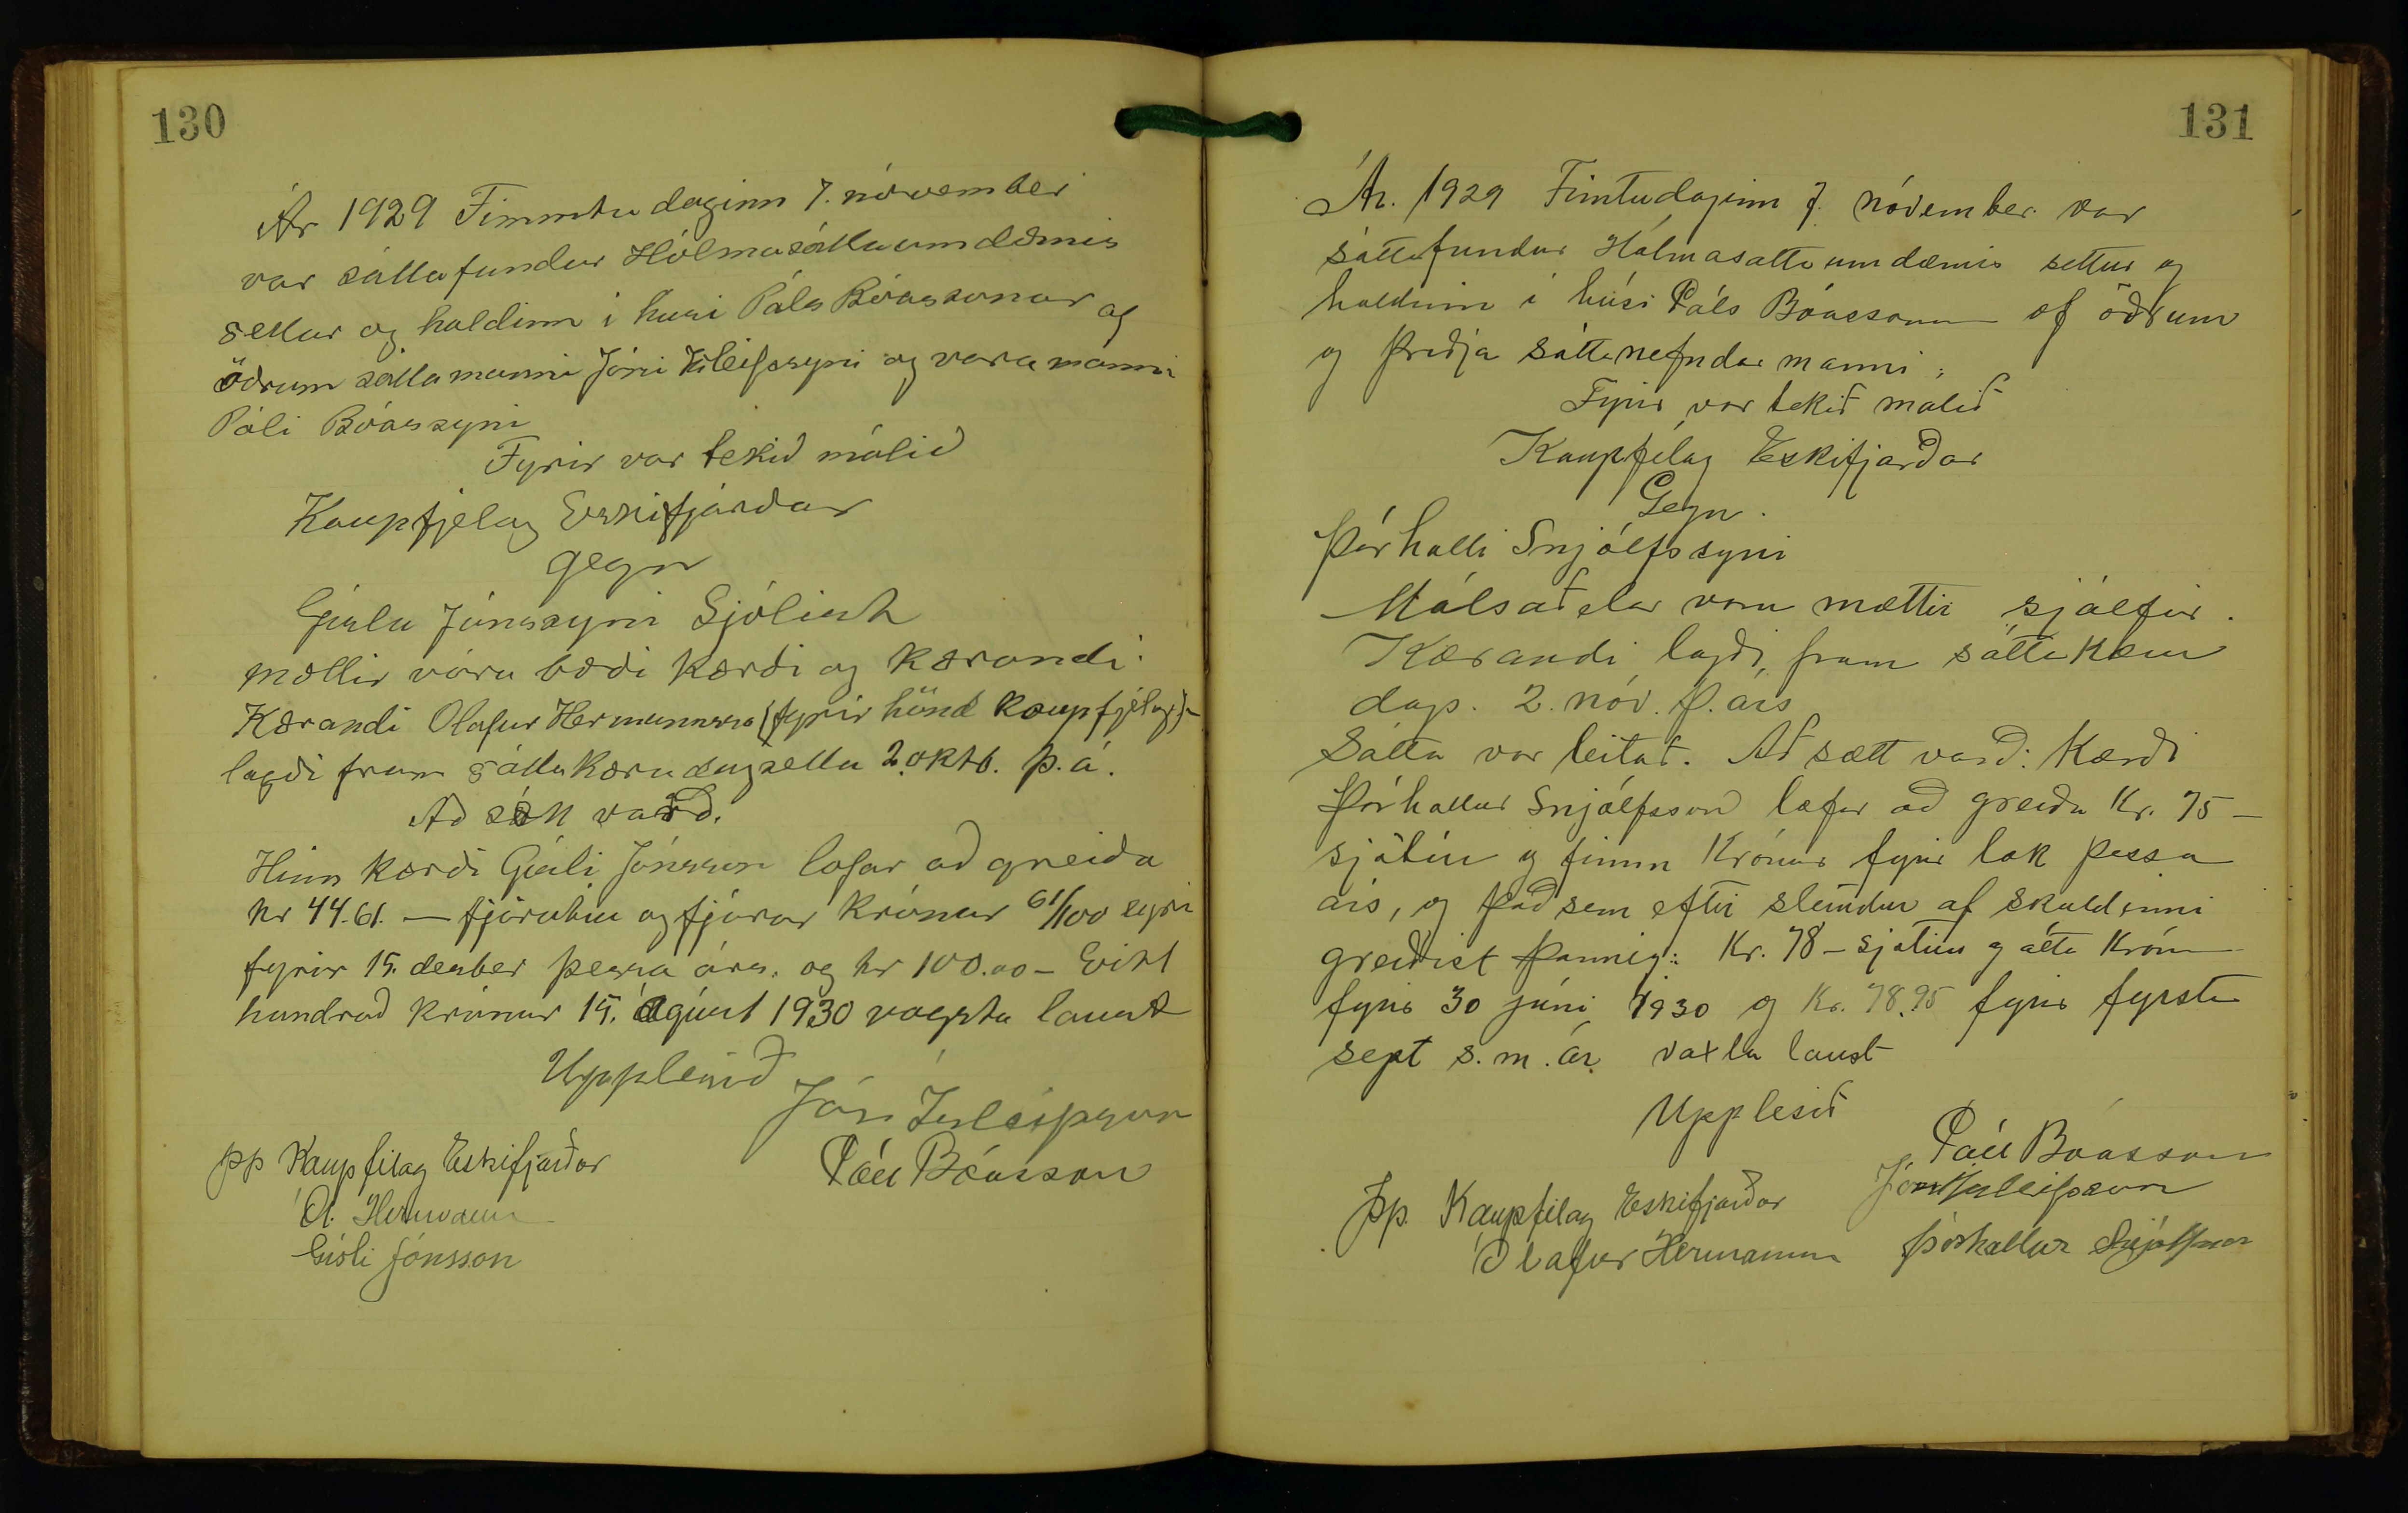 130
Ár 1929 Fimmtudaginn 7. nóvember
var sáttafundur Hólmasáttaumdæmis
settur og haldinn i husi Páls Bóassonar af
öðrum sáttamanni Jóni Ísleifssyni og varamanni
Páli Bóassyni
Fyrir var tekið málið
Kaupfjelag Eskifjarðar
gegn
Gísla Jónssyni Sjólist
mættir vóru bæði kærði og kærandi.
Kærandi Olafur Hermannsson (fyrir hönd kaupfjélags)
lagði fram sáttakæru dagsetta 2. oktb. þ.á.
Að sátt varð.
Hinn kærði Gísli Jónsson lofar að greiða
kr 44.61. — fjörutíu og fjórar krónur 61/100 eyri
fyrir 15. desber þessa árs. og kr 100.00 — Eitt
hundrað krónur 15. ágúst 1930 vaxta laust
Upplesið
Jón Ísleifsson
Páll Bóasson
pp Kaupfélag Eskifjarðar
Ól. Hermanns
Gísli Jónsson
131
Ár. 1929 Fimtudaginn 7. nóvember var
sáttafundur Hólmasáttaumdæmis settur og
haldinn í húsi Páls Bóassonar af öðrum
og þriðja sáttanefndarmanni.
Fyrir var tekið malið
Kaupfélag Eskifjarðar
Gegn.
Þórhalli Snjólfssyni
Málsaðelar voru mættir sjálfir.
Kærandi lagði fram sáttakæru
dags. 2. nóv. þ. árs
Sátta var leitað. Að sætt varð: Kærði
Þórhallur Snjólfsson lofar að greiða Kr. 75 —
sjötíu og fimm Krónur fyrir lok þessa
árs, og það sem eftir stendur af skuldinni
greiðist þannig: Kr. 78 — sjötíu og átta Krónur
fyrir 30 júní 1930 og Kr. 78.95 fyrir fyrsta
sept s. m. ár. vaxta laust
Upplesið
Páll Bóasson
Jón Ísleifsson
pp. Kaupfélag Eskifjarðar
Ólafur Hermanns Þórhallur Snjólfsson